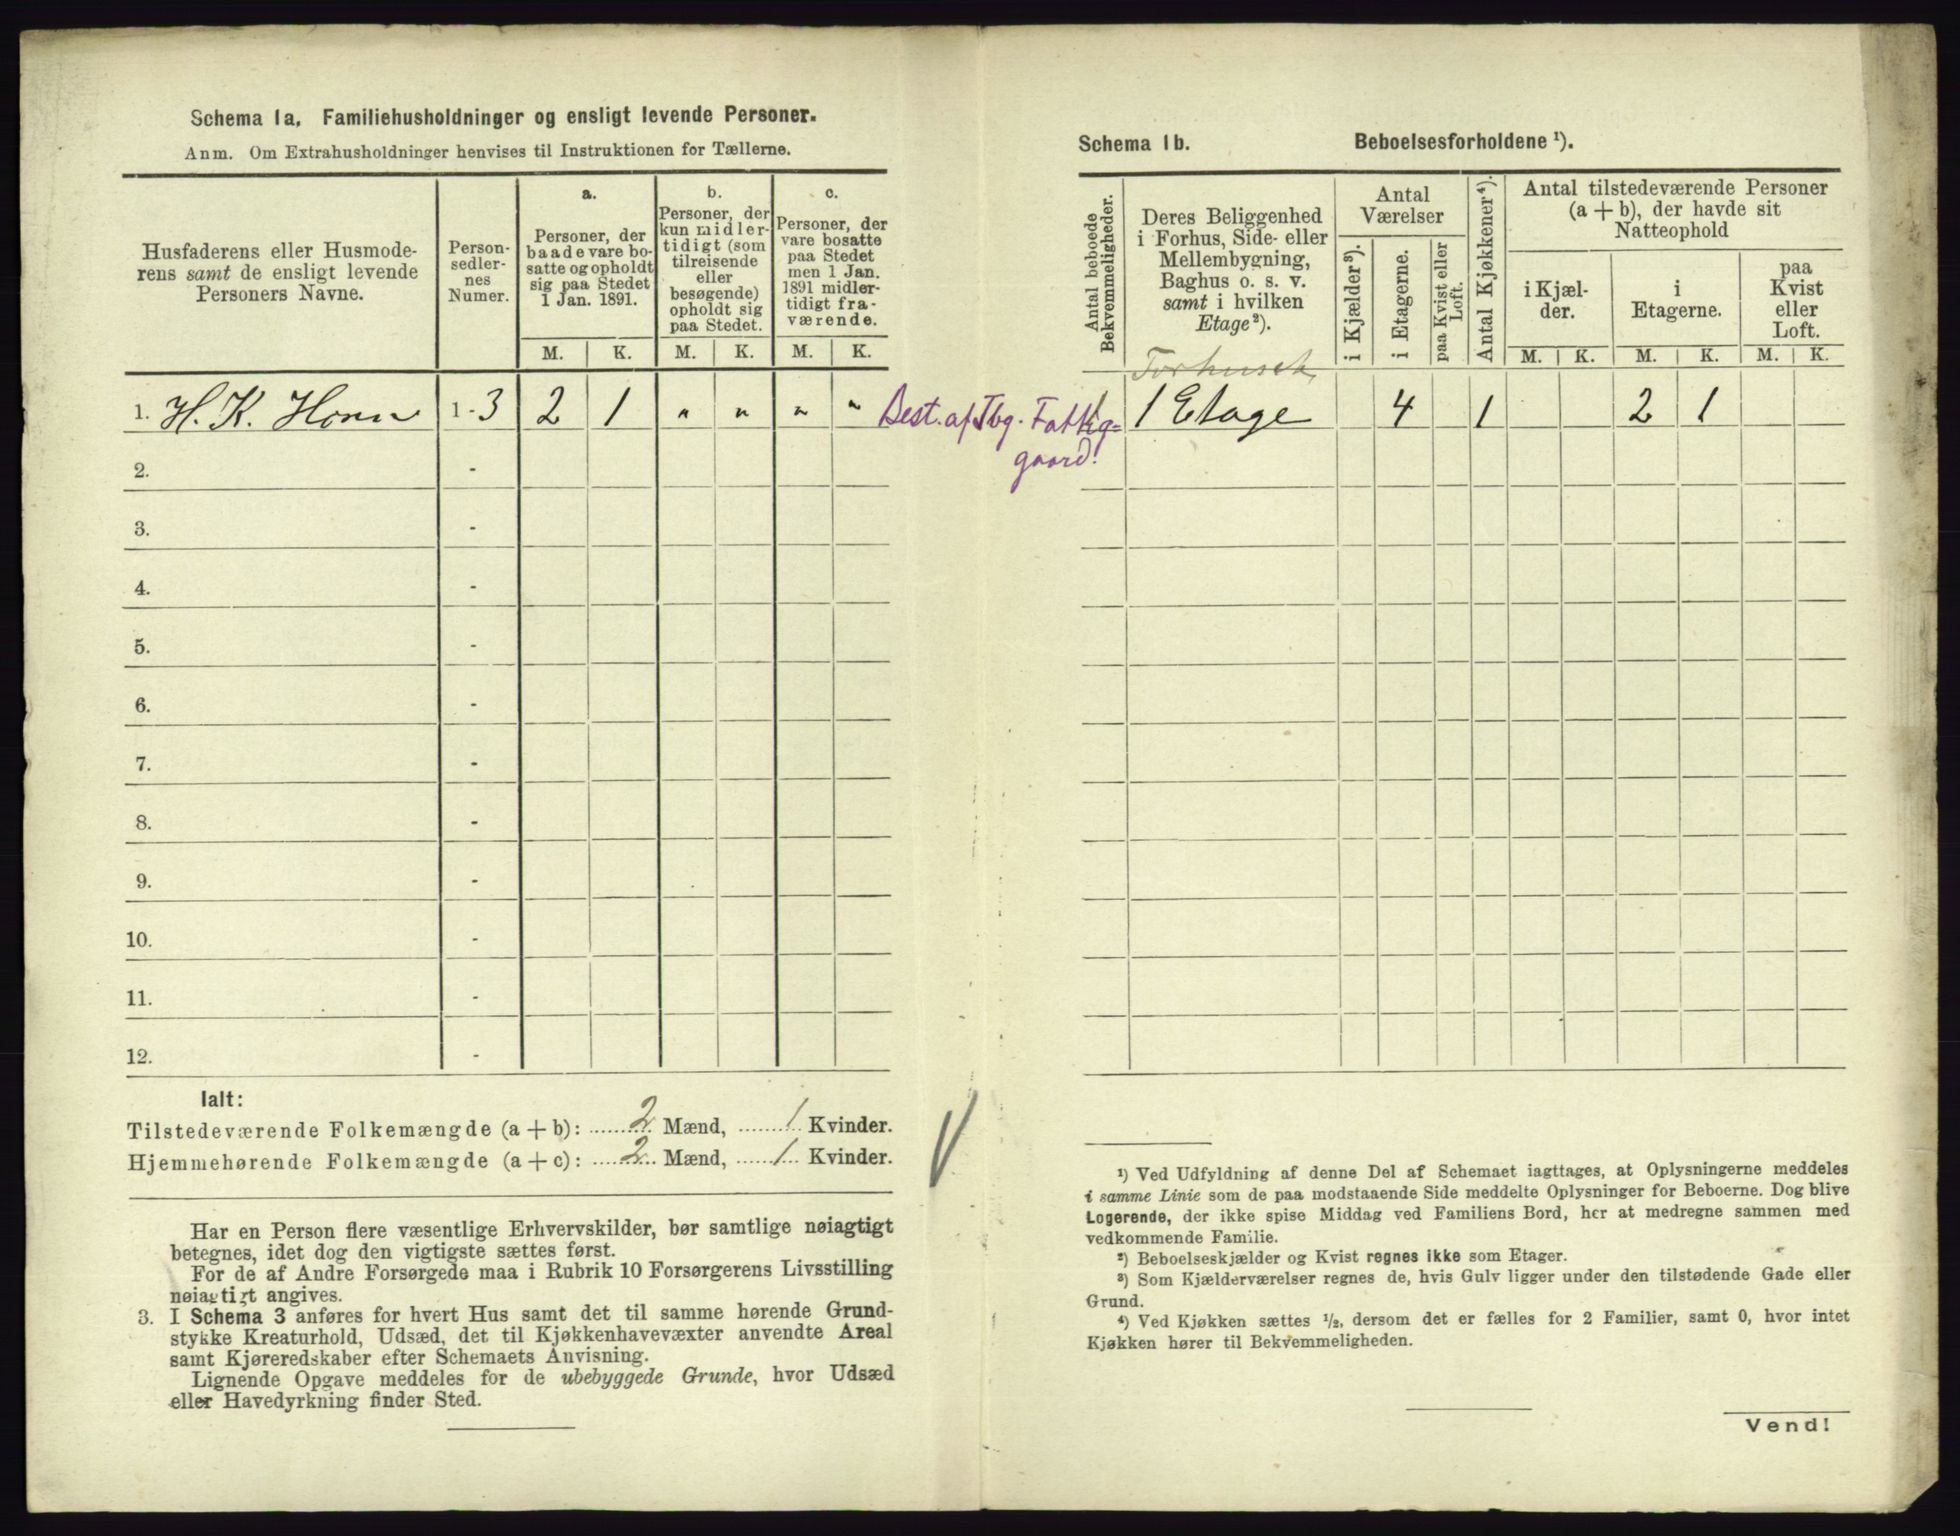 Schema 1a. Familiehusholdninger og ensligt levende Personer.
Anm. Om Extrahusholdninger henvises til Instruktionen for Tællerne.
Husfaderens eller Husmode-
rens samt de ensligt levende
Personers Navne.
Person-
sedler-
nes
Numer.
a.
Personer, der
baade vare bo-
satte og opholdt
sig paa Stedet
1 Jan. 1891.
b.
Personer, der
kun midler-
tidigt (som
tilreisende
eller
besøgende)
opholdt sig
paa Stedet.
c.
Personer, der
vare bosatte
paa Stedet
men 1 Jan.
1891 midler-
tidigt fra-
værende.
M. K. M. K. M. K.
1. H. K. Horn 1-3 2 1 " " " "
2. -
3. -
4. -
5. -
6. -
7. -
8. -
9. -
10. -
11. -
12. -
Ialt:
Tilstedeværende Folkemængde (a + b): 2 Mænd, 1 Kvinder.
Hjemmehørende Folkemængde (a + c): 2 Mænd, 1 Kvinder.
Har en Person flere væsentlige Erhvervskilder, bør samtlige nøiagtigt
betegnes, idet dog den vigtigste sættes først.
For de af Andre Forsørgede maa i Rubrik 10 Forsørgerens Livsstilling
nøiagtigt angives.
3. I Schema 3 anføres for hvert Hus samt det til samme hørende Grund-
stykke Kreaturhold, Udsæd, det til Kjøkkenhavevæxter anvendte Areal
samt Kjøreredskaber efter Schemaets Anvisning.
Lignende Opgave meddeles for de ubebyggede Grunde, hvor Udsæd
eller Havedyrkning finder Sted.
Schema 1b. Beboelsesforholdene ¹).
Antal beboede
Bekvemmeligheder.
Deres Beliggenhed
i Forhus, Side- eller
Mellembygning,
Baghus o. s. v.
samt i hvilken
Etage²).
Antal
Værelser
i Kjælder³).
i Etagerne.
paa Kvist eller
Loft.
Antal Kjøkkener⁴).
Antal tilstedeværende Personer
(a + b), der havde sit
Natteophold
i Kjæl-
der.
i
Etagerne.
paa
Kvist
eller
Loft.
M. K. M. K. M. K.
Forhuset,
Best. af Tbg. Fattig=
gaard!
1 1 Etage 4 1 2 1
¹) Ved Udfyldning af denne Del af Schemaet iagttages, at Oplysningerne meddeles
i samme Linie som de paa modstaaende Side meddelte Oplysninger for Beboerne. Dog blive
Logerende, der ikke spise Middag ved Familiens Bord, her at medregne sammen med
vedkommende Familie.
²) Beboelseskjælder og Kvist regnes ikke som Etager.
³) Som Kjælderværelser regnes de, hvis Gulv ligger under den tilstødende Gade eller
Grund.
⁴) Ved Kjøkken sættes ½, dersom det er fælles for 2 Familier, samt 0, hvor intet
Kjøkken hører til Bekvemmeligheden.
Vend!